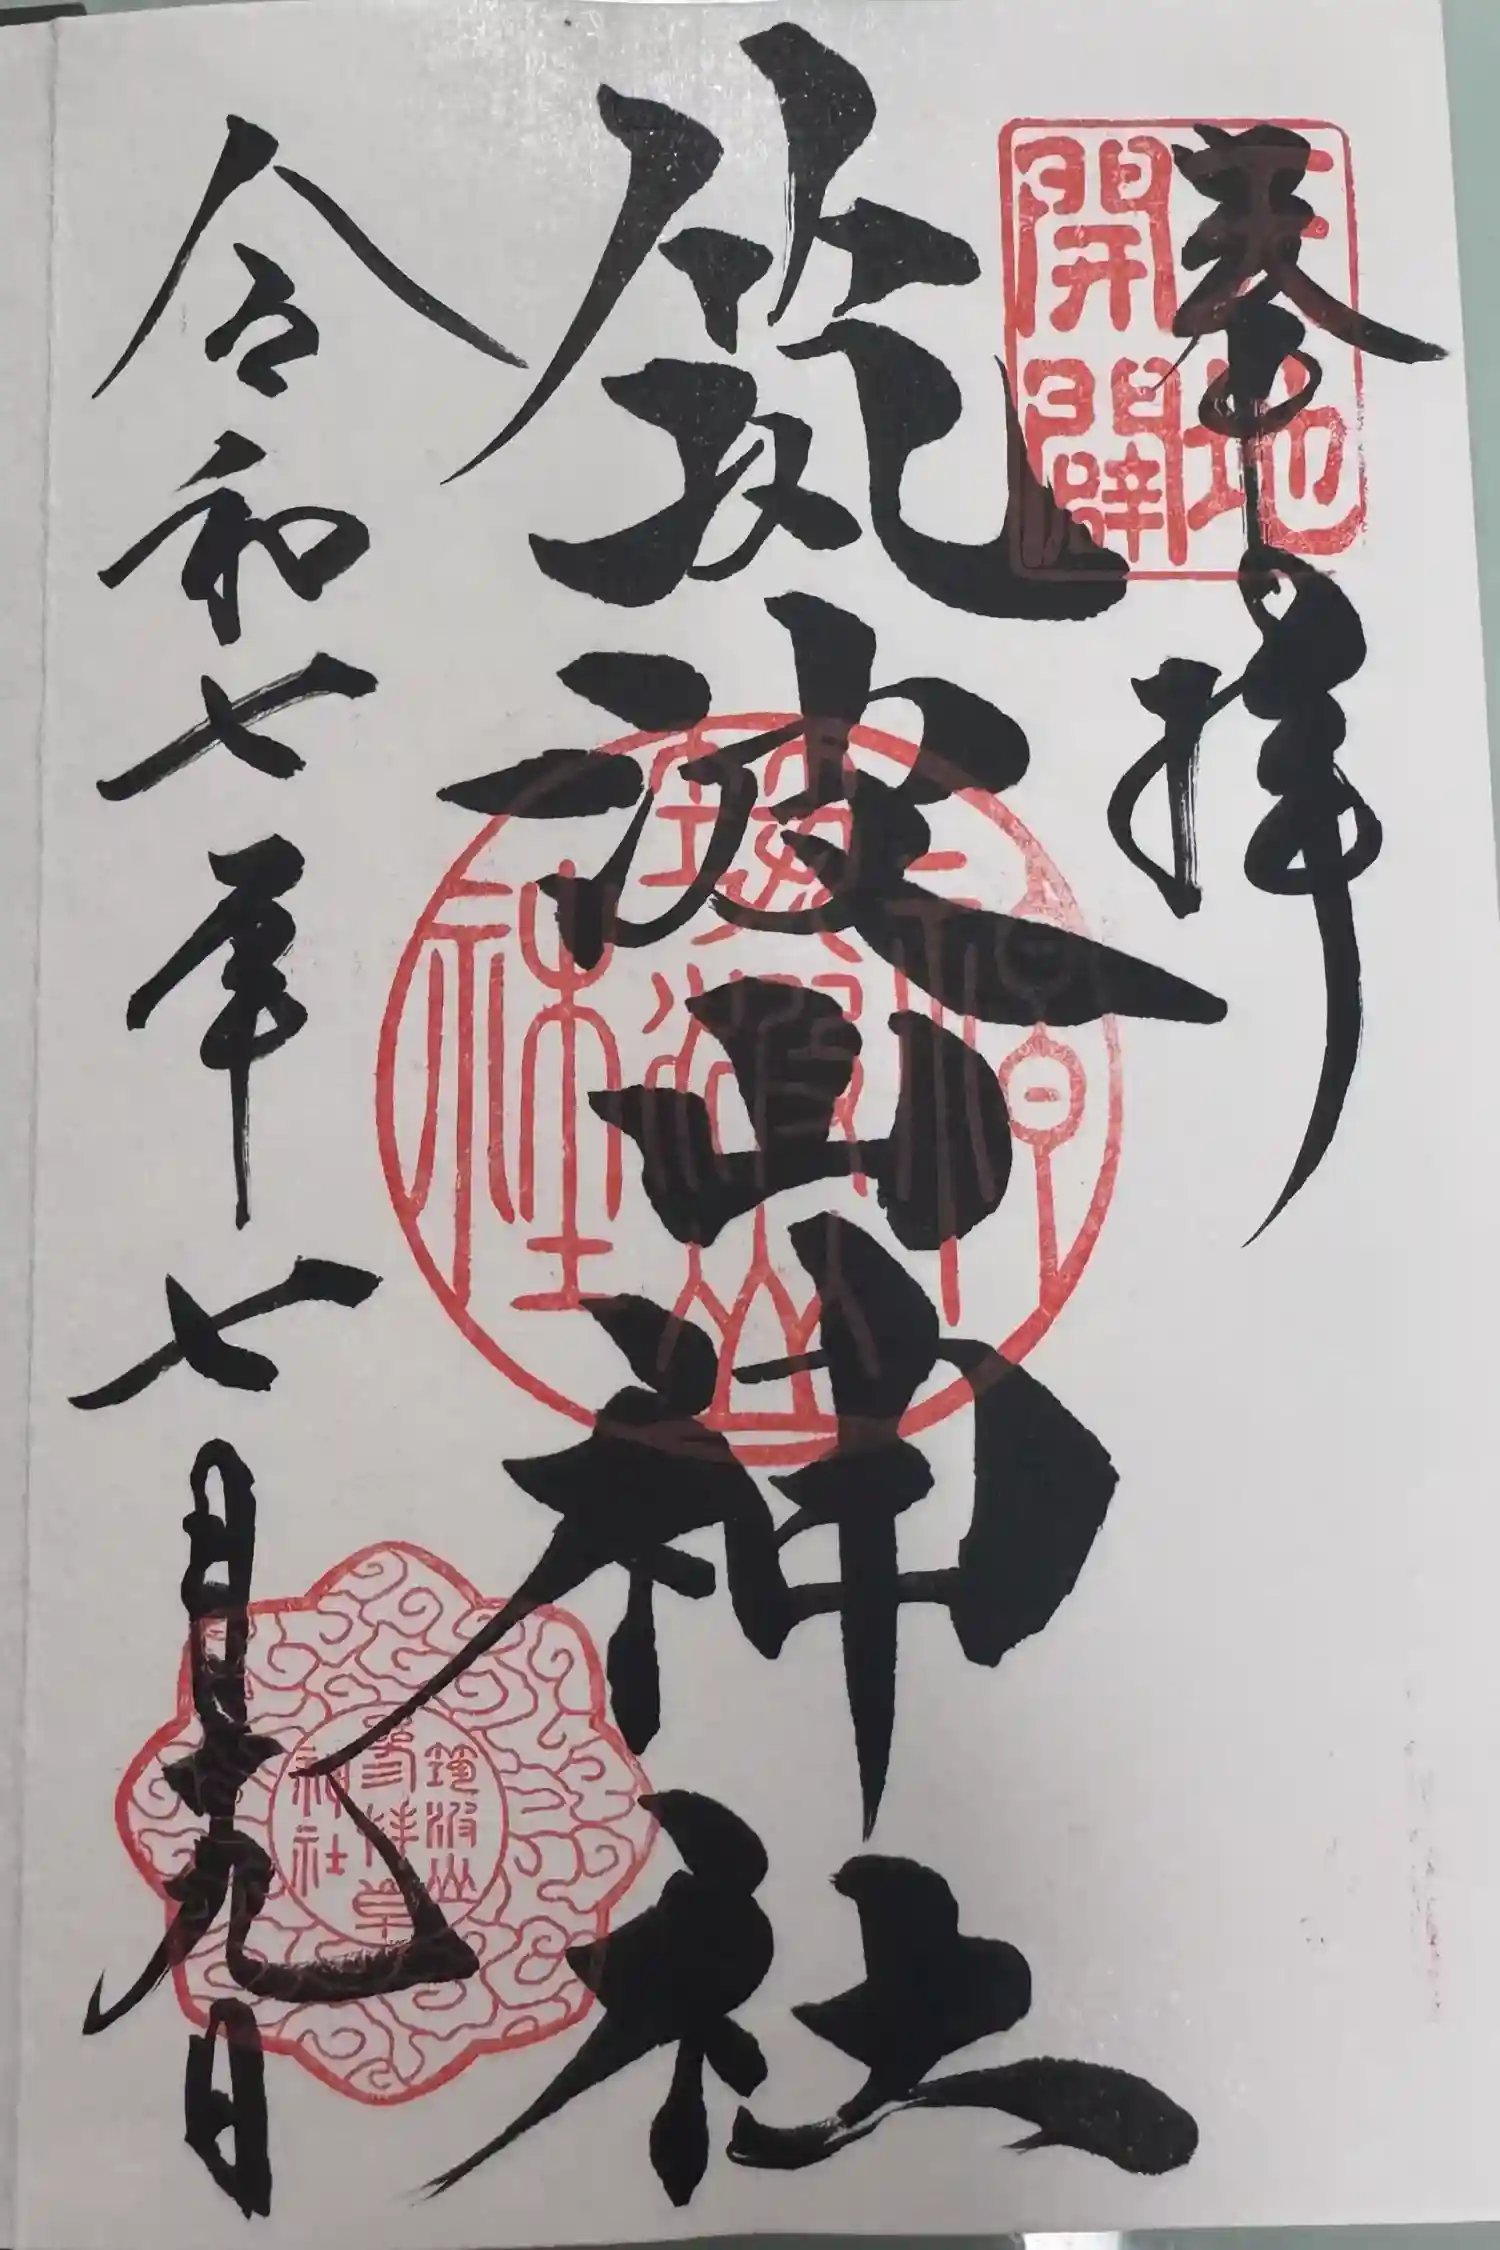 奉拝
天地
開闢
筑波山神社
筑波山
神社
令和七年七月十九日
筑波山
神社